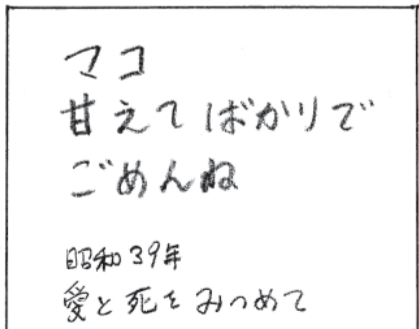 マコ
甘えてばかりで
ごめんね
昭和39年
愛と死をみつめて